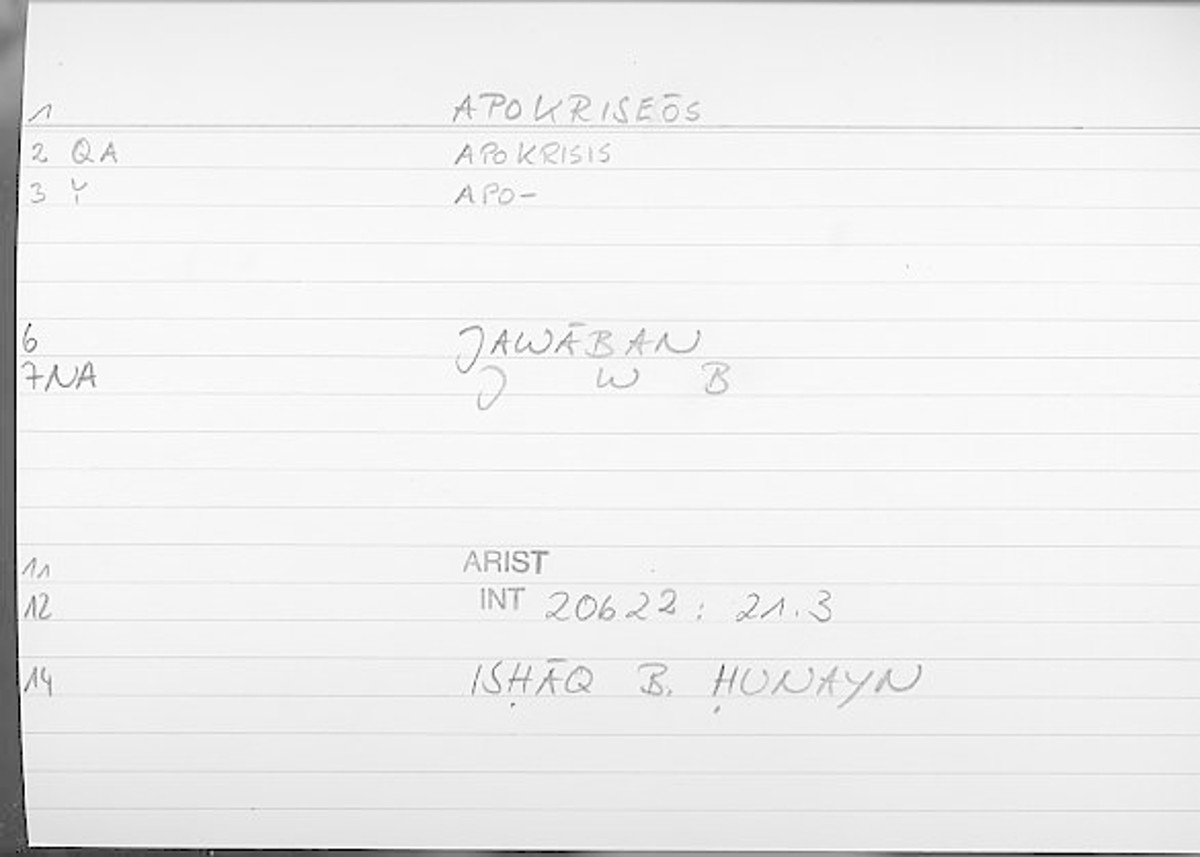 1 APOKRISEŌS
2 QA APOKRISIS
3 Y APO-
6 JAWĀBAN
7NA J W B
11 ARIST
12 INT 20622 : 21.3
14 ISḤĀQ B. ḤUNAYN